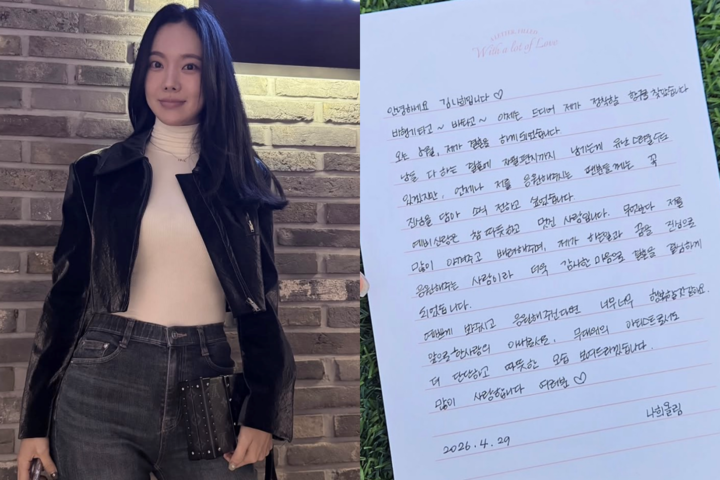 A LETTER FROM
With a lot of Love
안녕하세요 김나희입니다 ♡
비행기타고~ 버스타고~ 이제는 드디어 제가 정착할 항구를 찾았습니다
오는 제가 결혼을 하게 되었습니다.
남들 다 하는 결혼에 자필편지까지 남기는게 유난스러울 수도
있겠지만, 언제나 저를 응원해주시는 팬분들께는 꼭
진심을 담아 소식 전하고 싶었습니다.
예비신랑은 참 따뜻하고 멋진 사람입니다. 무엇보다 저를
많이 아껴주고 배려해주며, 제가 하는일과 꿈을 진심으로
응원해주는 사람이라 더욱 감사한 마음으로 결혼을 결심하게
되었습니다.
예쁘게 봐주시고 응원해주신다면 너무너무 행복할 것 같아요.
앞으로 한사람의 아내로서도, 무대위의 아티스트로서도
더 단단하고 따뜻한 모습 보여드리겠습니다.
많이 사랑합니다 여러분 ♡
나희올림
2026. 4. 29